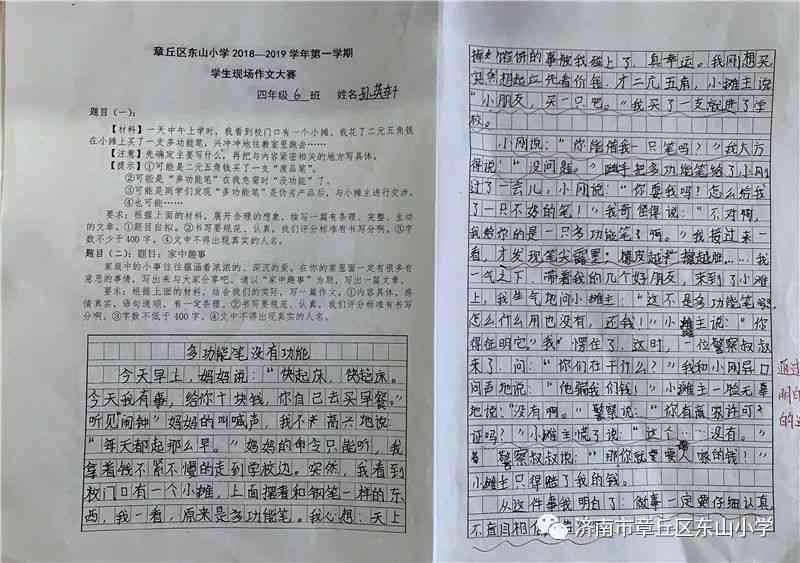 章丘区东山小学2018—2019学年第一学期
学生现场作文大赛
四年级 6 班 姓名
题目（一）：
【材料】一天中午上学时，我看到校门口有一个小摊，我花了二元五角钱
在小摊上买了一支多功能笔，兴冲冲地往教室里跑去……
【注意】先确定主要写什么，再把与内容紧密相关的地方写具体。
【提示】①可能是二元五角钱买了一支“废品笔”。
②可能是“多功能笔”在我急需时“没功能”了。
③可能是同学们发现“多功能笔”是伪劣产品后，与小摊主进行交涉。
④也可能……
要求：根据上面的材料，展开合理的想象，编写一篇有条理、完整、生动
的文章。①题目自拟。②书写要规范、认真，我们评分标准有书写分啊。③字
数不少于400字。④文中不得出现真实的人名。
题目（二）：题目：家中趣事
家庭中的小事往往蕴涵着浓浓的、深沉的爱。在你的家里面一定有很多有
意思的事情，写出来与大家分享吧。请以“家中趣事”为题，写出一篇文章。
要求：根据上面的材料，结合我们的实际，写一篇作文。①内容具体，感
情真实，语句通顺，有一定条理。②书写要规范、认真，我们评分标准有书写
分啊。③字数不少于400字。④文中不得出现真实的人名。
多功能笔没有功能
今天早上，妈妈说：“快起床，快起床。
今天我有事，给你十块钱，你自己去买早餐。”
听见“闹钟”妈妈的叫喊声，我不高兴地说：
“每天都起那么早。”妈妈的命令只能听，我
拿着钱不紧不慢的走到学校边。突然，我看到
校门口有一个小摊，上面摆着和钢笔一样的东
西，我一看，原来是多功能笔。我心想：天上
掉馅饼的事被我碰上了，真幸运。我刚想买
突然想起应先看价钱，才二元五角，小摊主说
“小朋友，买一只吧。”我买了一支就进了学
校。
小刚说：“你能借我一只笔吗？”我大方
得说：“没问题。”随手把多功能笔给了小刚
过了一会儿，小刚说：“你耍我吗！怎么给我
了一只不好的笔！”我奇怪得说：“不对啊，
我给你的是一只多功能笔了啊。”我接过来一
看，才发现笔尖露墨，橡皮越 擦越脏……，我
一气之下，带着我的几个好朋友，来到了小摊
上，我生气地问小摊主：“这不是多功能笔吗
怎么什么用也没有，还钱！”小摊主说：“你
得证明它。”我愣住了，这时，一位警察叔叔
来了，问：“你们在干什么？”我和小刚异口
同声地说：“他骗我们钱！”小摊主一脸无辜
地说：“没有啊。”警察说：“你有营业许可
证吗？”小摊主慌了说：“这个……没有。”
警察叔叔说：“那你就要 人家的钱！”
小摊主只得赔了我的钱。
从这件事我明白了：做事一定要仔细认真，
不盲目相信
济南市章丘区东山小学
通过
明白
的道